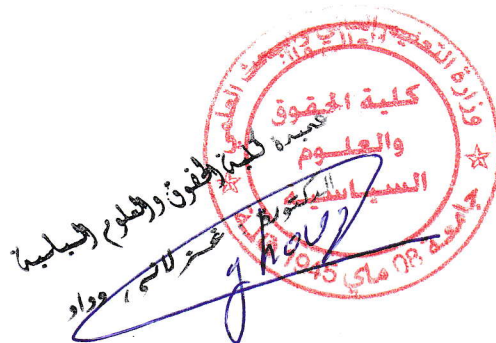 وزارة التعليم العالي والبحث العلمي
كلية الحقوق
والعلوم
السياسية
جامعة 08 ماي 1945
عميدة كلية الحقوق والعلوم السياسية
الدكتورة
وداد